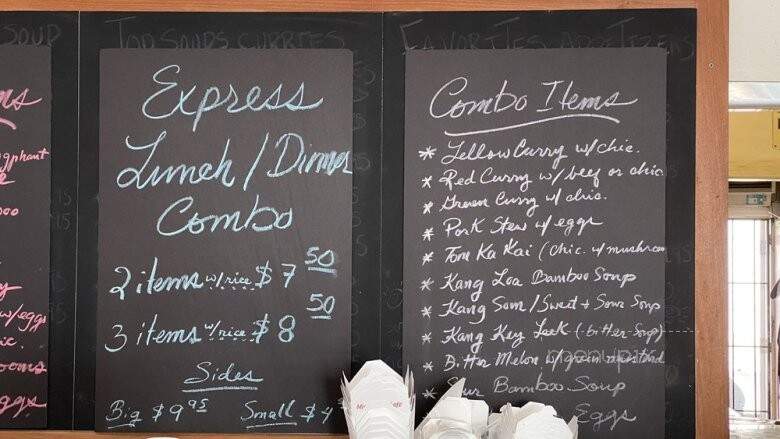 SOUP
TOP SOUPS CURRIES
FAVORITES
Express
Lunch / Dinner
Combo
2 items w/rice $7 50
3 items w/rice $8 50
Sides
Big $9 95 Small $4
Combo Items
* Yellow Curry w/chic.
* Red Curry w/beef or chic
* Green Curry w/chic.
* Pork Stew w/eggs
* Tom Ka Kai (chic. w/mushroom
* Kang Loa Bamboo Soup
* Kang Som / Sweet + Sour Soup
* Kang Key Leck (bitter Soup)
* Bitter Melon w/
* Sour Bamboo Soup
Eggs
boo
w/eggs
ic.
ooms
ggs